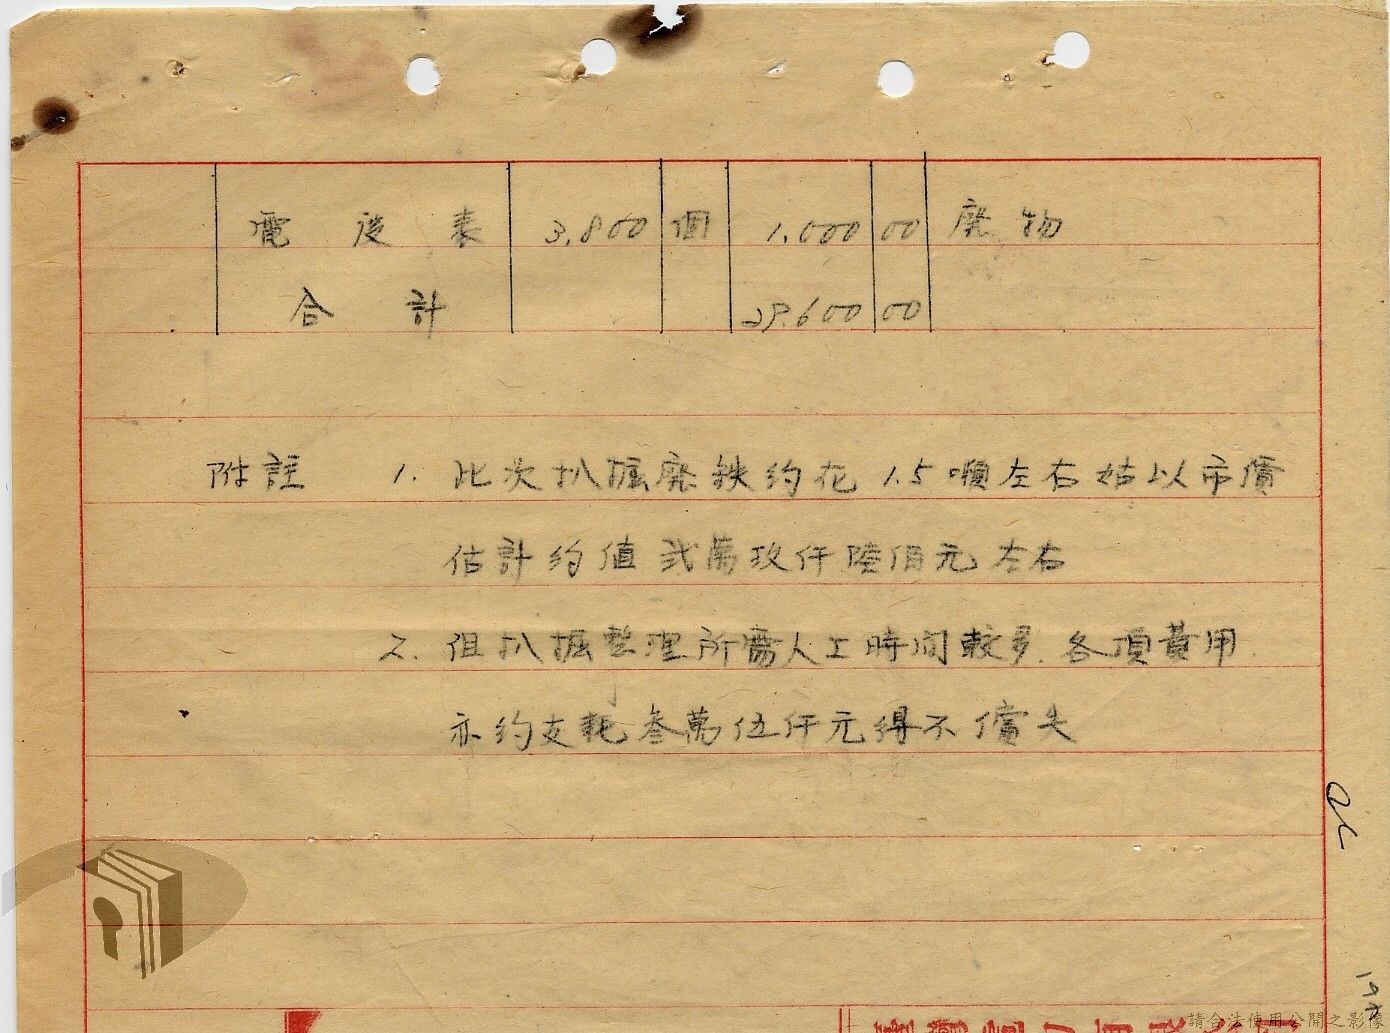 電 表 3,800 個 1,000 00 廢物
合計 29,600 00
附註 1. 此次扒掘廢鉄約在 1.5 噸左右姑以市價
估計約值弍萬玖仟陸佰元左右
2. 但扒掘整理所需人工時間較多.各項費用
亦約支耗叁萬伍仟元得不償失
請合法使用公開之影像